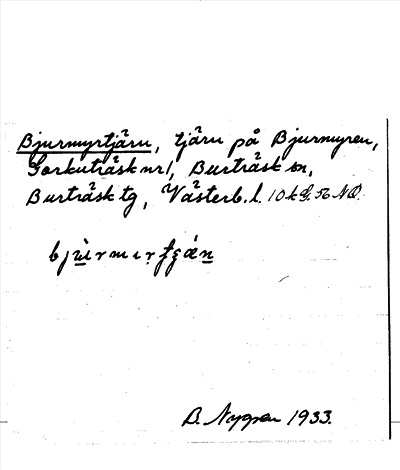 Bjurmyrtjärn, tjärn på Bjurmyren,
Gorkuträsk nr1, Burträsk sn,
Burträsk tg, Västerb. l. 10 k G. 56 NO
bjùrmırtʂǽn
B. Nygren 1933.